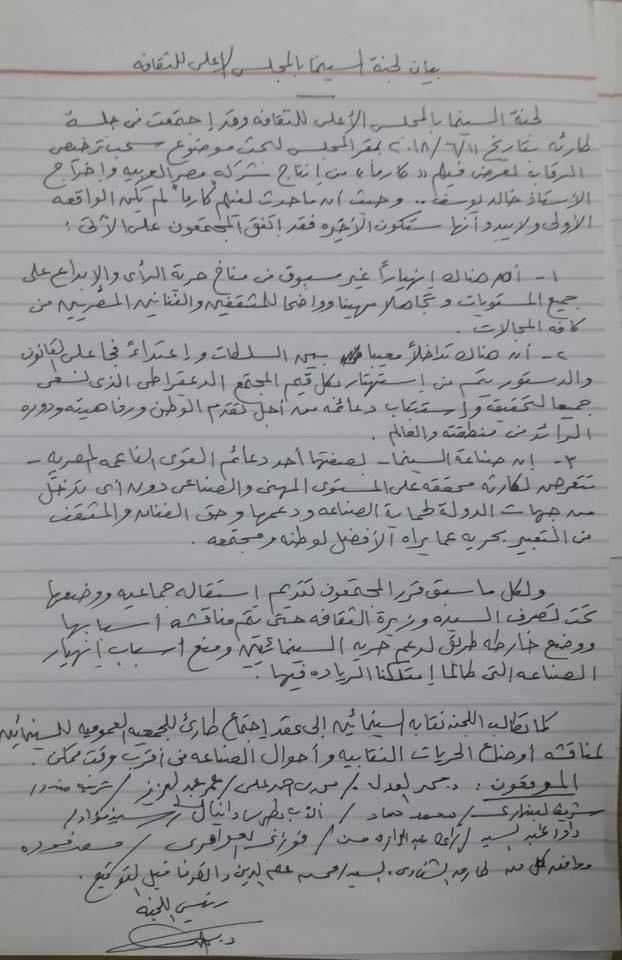 بيان لجنة السينما بالمجلس الأعلى للثقافه
لجنة السينما بالمجلس الأعلى للثقافه وقد إجتمعت فى جلسة
طارئه بتاريخ ٢٠١٨/٦/١١ بمقر المجلس لبحث موضوع سحب ترخيص
الرقابة لعرض فيلم "كارما" من إنتاج شركة مصر العربيه وإخراج
الأستاذ خالد يوسف .. وحيث أن ماحدث لفيلم "كارما" لم تكن الواقعه
الأولى ولا يبدو أنها ستكون الأخيره فقد إتفق المجتمعون على الآتى :
١- أن هناك إنهياراً غير مسبوق فى مناخ حرية الرأى والإبداع على
جميع المستويات وتجاهلاً مهينا وواضحا للمثقفين والفنانين المصريين من
كافه المجالات .
٢- أن هناك تداخلاً معيبا بين السلطات وإعتداءً فجا على القانون
والدستور يتم من إستهتار بكل قيم المجتمع الديمقراطى الذى نسعى
جميعا لتحقيقه وإستتباب دعائمه من أجل تقدم الوطن ورفاهيته ودوره
الرائد فى منطقته والعالم .
٣- إن صناعة السينما - بصفتها أحد دعائم القوى الناعمه المصريه -
تتعرض لكارثه محققه على المستوى المهنى والصناعى دون أى تدخل
من جهات الدولة لحماية الصناعه ودعمها وحق الفنان والمثقف
فى التعبير بحريه عما يراه الأفضل لوطنه ومجتمعه .
ولكل ماسبق قرر المجتمعون تقديم إستقاله جماعيه ووضعها
تحت تصرف السيده وزيرة الثقافه حتى يتم مناقشه أسبابها
ووضع خارطه طريق لدعم حريه السينمائيين ومنع أسباب إنهيار
الصناعه التى طالما إمتلكنا الرياده فيها .
كما تطالب اللجنه نقابه السينمائيين إلى عقد إجتماع طارئ للجمعيه العموميه للسينمائيين
لمناقشه أوضاع الحريات النقابيه وأحوال الصناعه فى أقرب وقت ممكن .
الموقعون : د. محمد العدل / / عمر عبد العزيز /
شريف البندارى / محمد حماد / الأب بطرس دانيال / سيد فؤاد /
داود عبد السيد / / فوزى العوامرى / مسعد فوده
وموافقه كل من طارق الشناوى ،
رئيس اللجنه